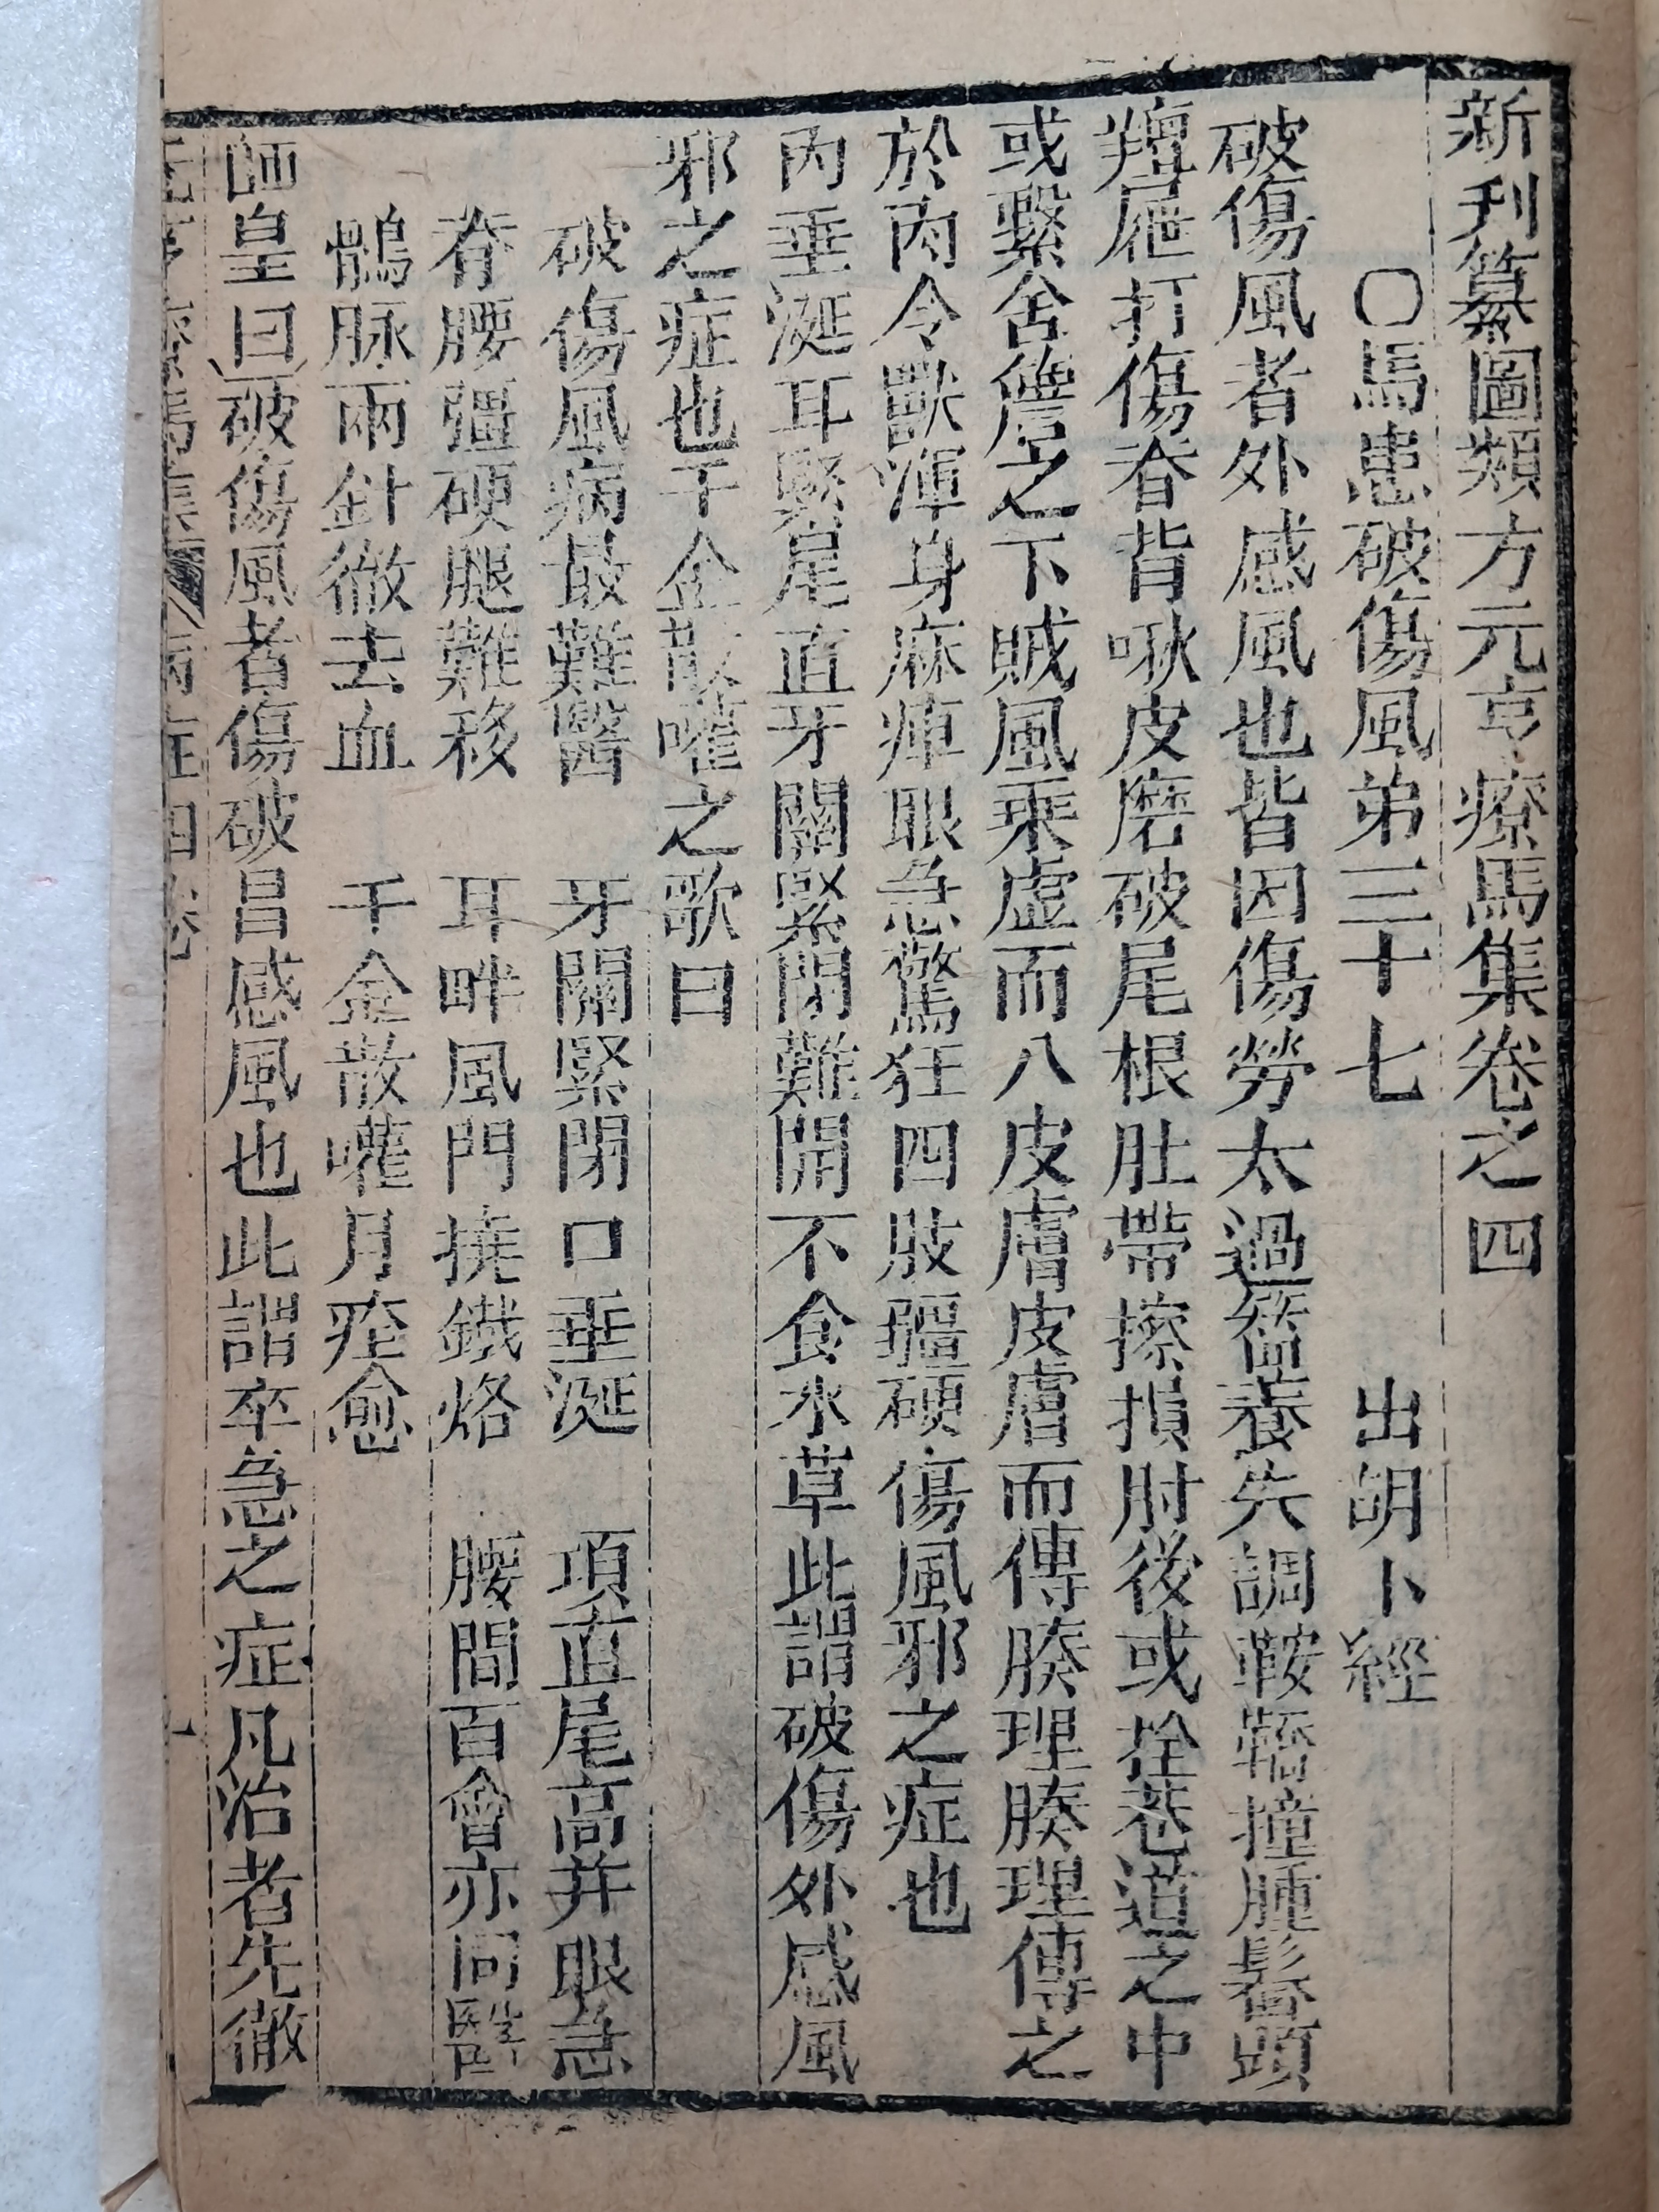 新刋纂圖類方元亨療馬集卷之四
○馬患破傷風弟三十七 出胡卜經
破傷風者外感風也皆因傷勞太過蓄養失調鞍鞽撞腫鬐頭
羶屜打傷脊背啾皮磨破尾根肚帶擦損肘後或拴巷道之中
或繫舍簷之下賊風乘虛而八皮膚皮膚而傳腠理腠理傳之
於內令獸渾身麻痺眼急驚狂四肢彊硬傷風邪之症也
內垂涎耳緊尾直牙關緊閉難開不食水草此謂破傷外感風
邪之症也千金散嚾之歌曰
破傷風病最難醫 牙關緊閉口垂涎 項直尾高并眼急
脊腰彊硬腿難移 耳畔風門撓鐵烙 腰間百會亦同醫
鶻脉兩針徹去血 千金散嚾月痊愈
師皇曰破傷風者傷破昌感風也此謂卒急之症凡治者先徹